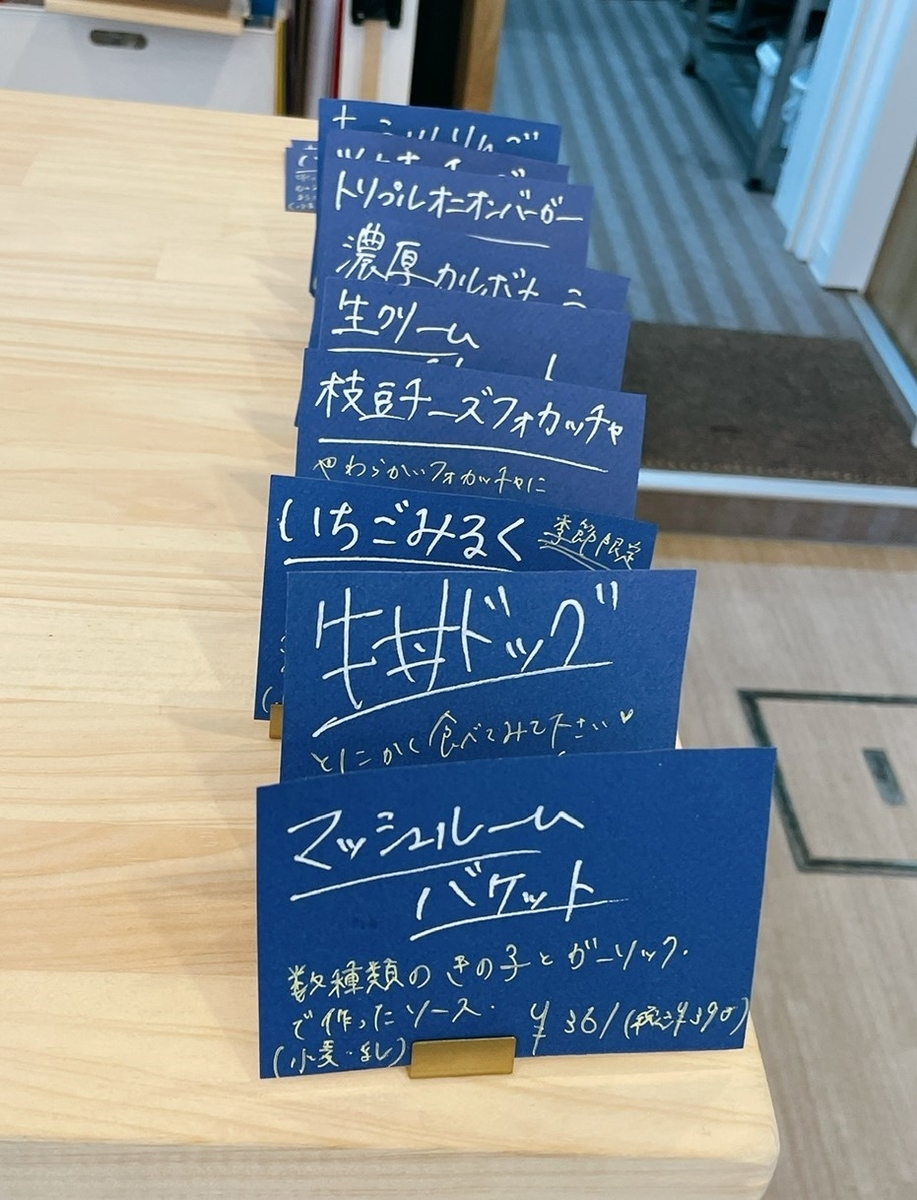 トリプルオニオンバーガー
濃厚カルボナ
生クリーム
枝豆チーズフォカッチャ
やわらかいフォカッチャに
いちごみるく 季節限定
ドッグ
とにかく食べてみて下さい♥
マッシュルーム
バケット
数種類のきの子とガーリック.
で作ったソース. ¥361(税込¥390)
(小麦・乳)